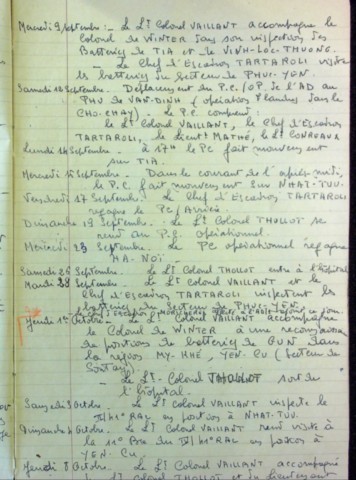 Mercredi 9 Septembre :- Le Lt Colonel VAILLANT accompagne le
Colonel de WINTER dans son inspection des
Batteries de TIA et de VINH-LOC-THUONG.
- Le Chef d'Escadrons TARTAROLI visite
les batteries du Secteur de PHUI-YEN.
Samedi 12 Septembre. Déplacement du P.C./OP. de l'AD au
PHU de VAN-DINH (opérations dans le
CHO-CHAY) - le P.C. comprend :
le Lt Colonel VAILLANT, le Chef d'Escadrons
TARTAROLI, le Lieut MATHÉ, le Lt
Lundi 14 Septembre. - à 17H le PC fait mouvement
sur TIA.
Mercredi 16 Septembre. - Dans le courant de l'après midi,
le P.C. fait mouvement sur NHAT-TUU.
Vendredi 17 Septembre. - Le Chef d'Escadrons TARTAROLI
regagne le PC/Arrière.
Dimanche 19 Septembre. - Le Lt Colonel THOLLOT se
rend au P.C. opérationnel.
Mercredi 23 Septembre. - Le PC opérationnel regagne
HA-NOÏ
Samedi 26 Septembre. - Le Lt Colonel THOLLOT entre à l'hôpital.
Mardi 29 Septembre. - Le Lt Colonel VAILLANT et le
Chef d'Escadrons TARTAROLI inspectent les
batteries du Secteur de PHUI-YEN.
Le Chef d'Escadron
Jeudi 1er Octobre. - Le Lt Colonel VAILLANT accompagne
le Colonel de WINTER à une reconnaissance
de positions de batteries de GUN dans
la région MY-RHÉ, YEN-CU (Secteur de
Sontay)
- Le Lt-Colonel THOLLOT sort de
l'hôpital.
Samedi 3 Octobre. - Le Lt Colonel VAILLANT inspecte le
RAC en position à NHAT-TUU.
Dimanche 4 Octobre. Le Lt Colonel VAILLANT rend visite à
la 11e Bie du RAC en position à
YEN-CU
Jeudi 8 Octobre. - Le Lt Colonel VAILLANT accompagné
du Lt Colonel THOLLOT et du Lieutenant